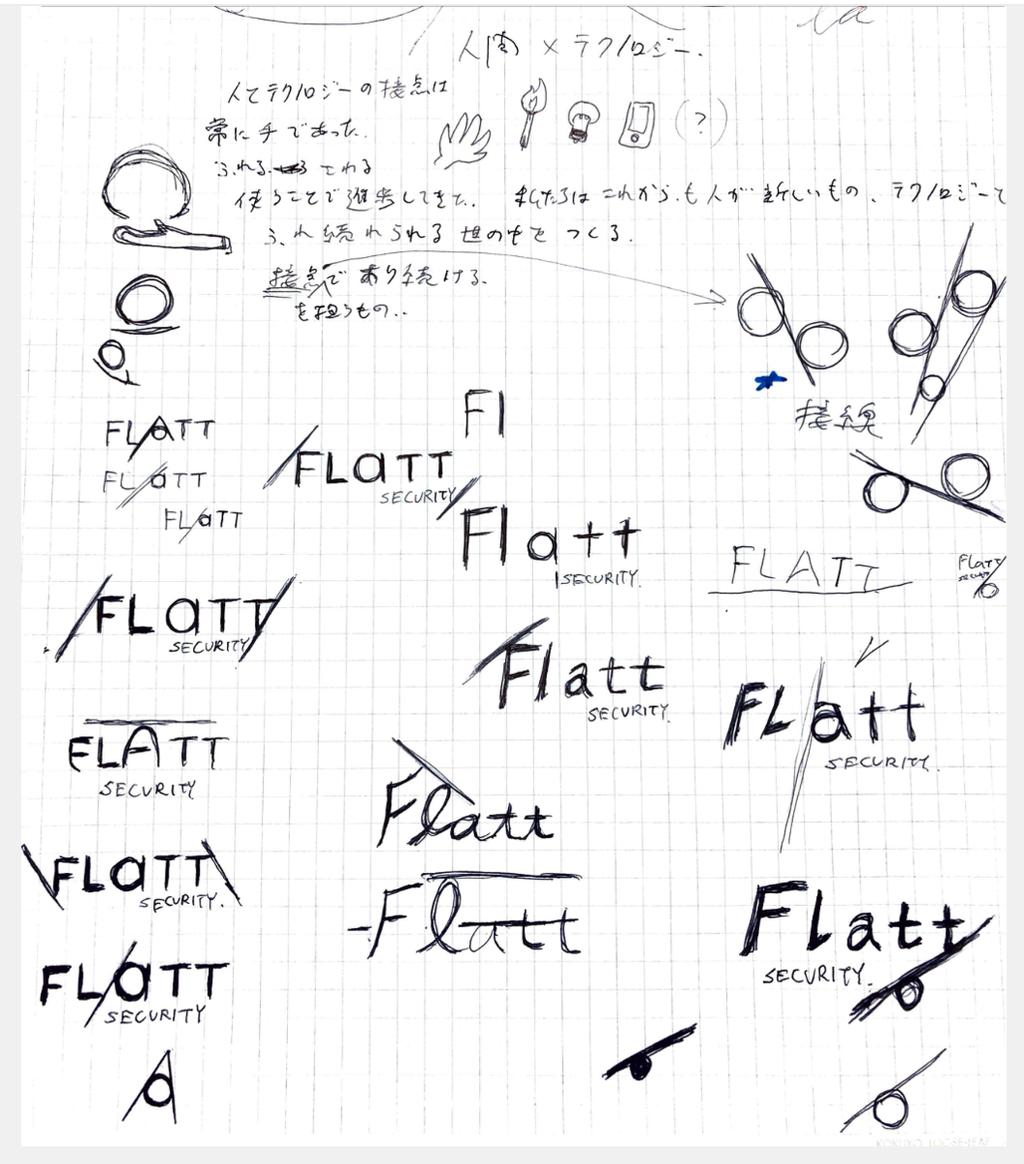 人間 × テクノロジー.
人とテクノロジーの接点は
常に手であった.
ふれる さわる
(?)
使うことで進歩してきた. 私たちはこれからも人が新しいもの、テクノロジーと
ふれ続けられる世の中をつくる.
接点であり続ける.
を担うもの..
接線
Fl
FLATT
FLaTT
FLaTT
FLaTT
SECURITY
Flatt
SECURITY.
FLATT
Flatt
FLaTT
SECURITY
Flatt
SECURITY.
FLatt
SECURITY.
FLATT
SECURITY
Flatt
FLaTT
SECURITY.
Flatt
Flatt
SECURITY.
FLaTT
SECURITY
KOKUYO LOOSE-LEAF